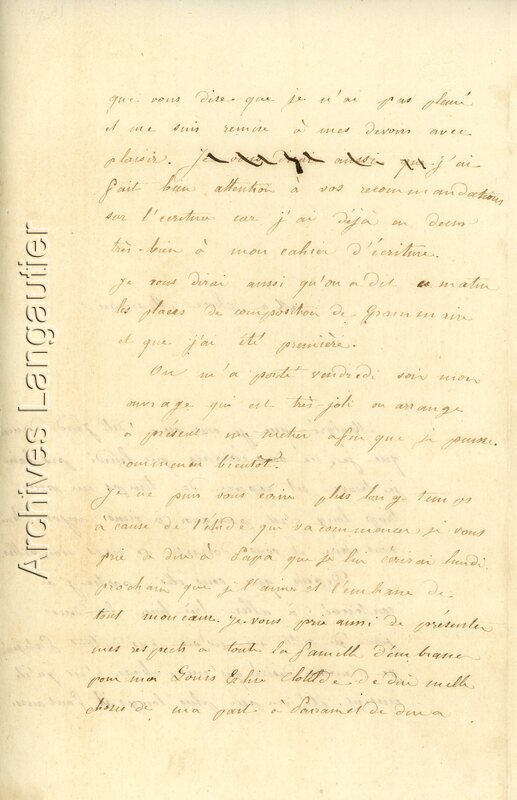 que vous dire que je n'ai pas pleuré
et me suis remise à mes devoirs avec
plaisir. Je vous dirai aussi que j'ai
fait bien attention à vos recommandations
sur l'ecriture car j'ai déjà eu deux
très-bien à mon cahier d'écriture.
Je vous dirai aussi qu'on a dit ce matin
les places de composition de Grammaire
et que j'ai été première.
On m'a porté vendredi soir mon
ouvrage qui est très-joli on arrange
à présent mon metier afin que je puisse
commencer bientôt.
Je ne puis vous écrire plus longtemps
à cause de l'étude qui va commencer je vous
prie de dire à Papa que je lui écrirai lundi
prochain que je l'aime et l'embrasse de
tout mon cœur. Je vous prie aussi de présenter
mes respects à toute la famille d'embrasser
pour moi Louis Clotilde de dire mille
choses de ma part à et de dire à
Archives Langautier